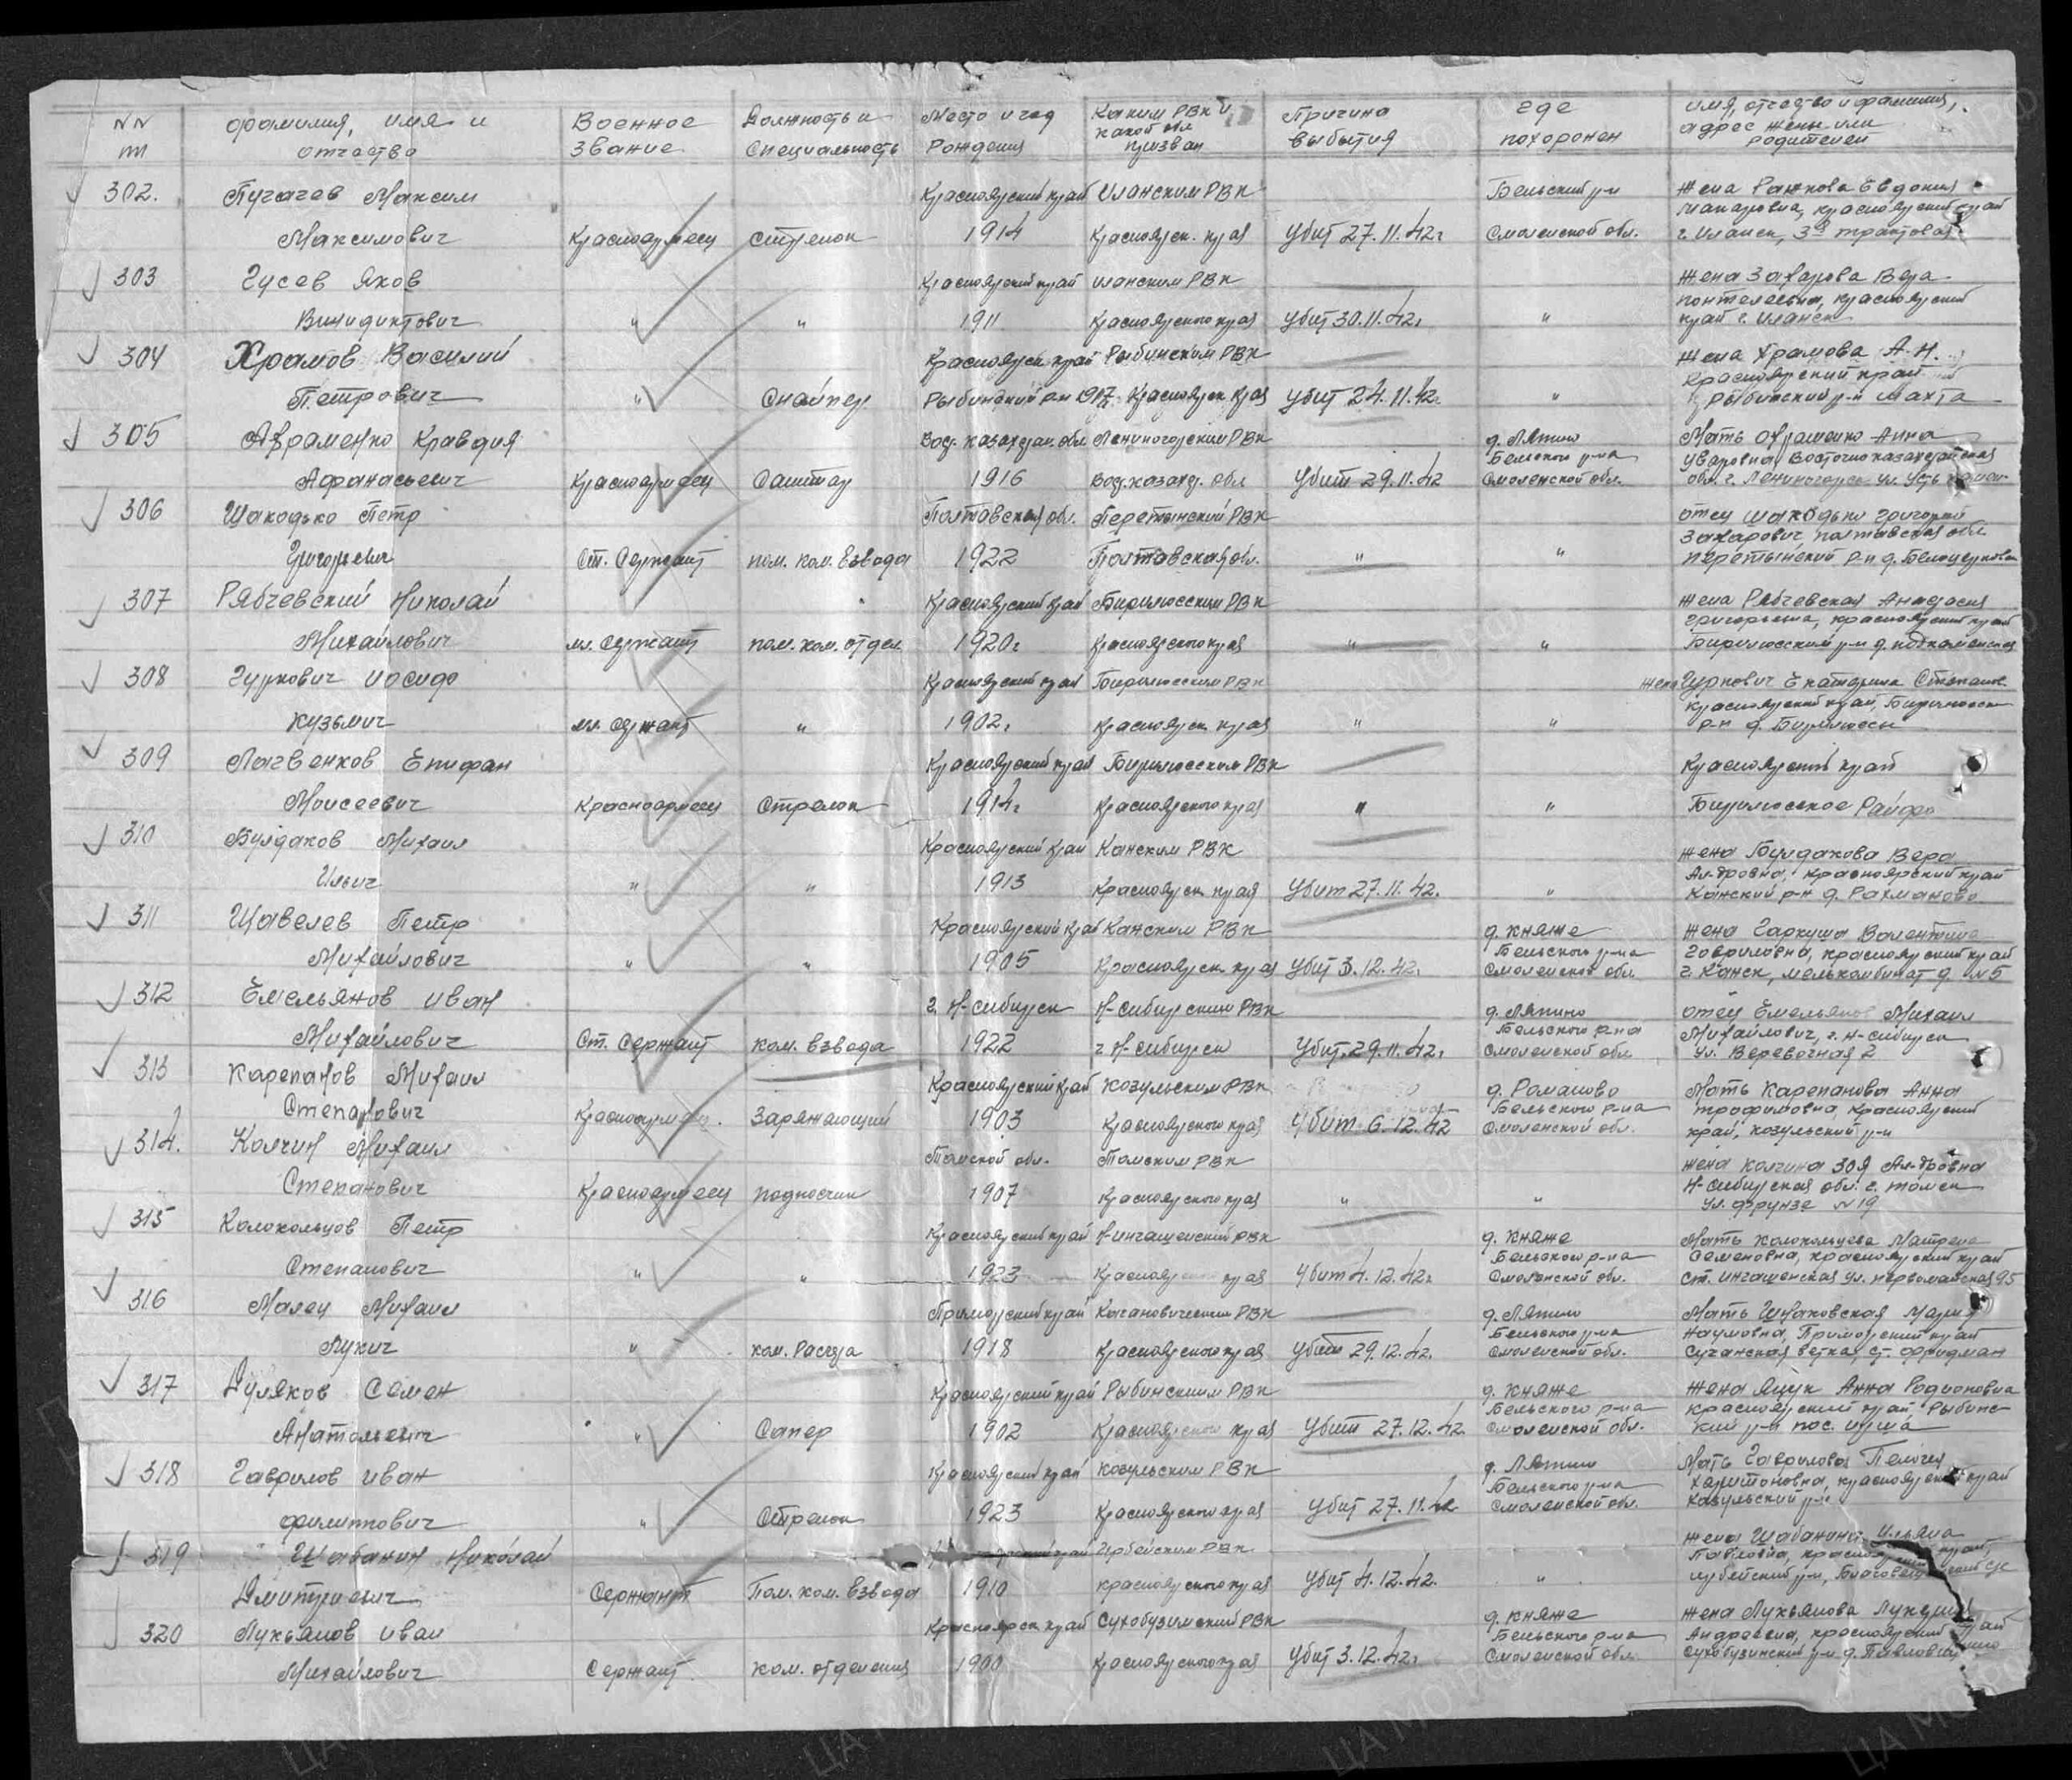 NN пп
фамилия, имя и отчество
Военное звание
Должность и специальность
Место и год рождения
Каким РВК и какой обл призван
Причина выбытия
где похоронен
имя, отчество и фамилия, адрес жены или родителей
302. Пугачев Максим Красноярский край Иланским РВК Бельский р-н Жена Рачкова Евдокия
Макаровна, красноярский край
Максимович Красноармеец стрелок 1914 Красноярск. края Убит 27.11.42г Смоленской обл. г. Иланск, 3я трактовая
303 Гусев Яков Красноярский край иланским РВК жена Захарова Вера
красноярский
Винидиктович " " 1911 Красноярского края Убит 30.11.42г " край г. Иланск
304 Храмов Василий Красноярск край Рыбинским РВК Жена Храмова А.Н.
Красноярский край
Петрович " Снайпер Рыбинский р-н 1917 Красноярск края Убит 24.11.42г " Рыбинский р-н шахта
305 Авраменко Кравдия Вос. казахстан. обл Лениногорским РВК д. Ляпино Мать Авраменко Анна
Бельского р-на Уваровна Восточно казахстанская
Афанасьевич Красноармеец Санитар 1916 Вос. казахс. обл Убит 29.11.42 Смоленской обл. обл. г. Лениногорск ул. Усть
306 Шакодько Петр Полтавская обл. Перетынский РВК отец Шакодько григорий
Захарович полтавская обл
Григорьевич Ст. Сержант пом. ком. взвода 1922 Полтавская обл. " " перетынский р-н д.
307 Рябчевский Николай Красноярский край Бирилюсским РВК Жена Рябчевская Анастасия
григорьевна, красноярский край
Михайлович мл. Сержант пом. ком. отдел. 1920г Красноярского края " " Бирилюсский р-н д. подкаменская
308 Гуркович Иосиф Красноярский край Бирилюсским РВК жена Гуркович Екатерина Степанов.
красноярский край, Бирилюсск
Кузьмич мл. сержант " 1902г Красноярск края " " р-н д. Бирилюссы
309 Логвенков Епифан Красноярский край Бирилюсским РВК Красноярский край
Моисеевич Красноармеец Стрелок 1914г Красноярского края " " Бирилюсское Райфо
310 Булдаков Михаил Красноярский край Канским РВК жена Булдакова Вера
Ал-дровна, красноярский край
Ильич " " 1913 Красноярск края Убит 27.11.42. " Канский р-н д. Рахманово
311 Щавелев Петр Красноярский край Канским РВК д. Княже жена Гаркуша Валентина
Бельского р-на Гавриловна, красноярский край
Михайлович " " 1905 Красноярск края Убит 3.12.42. Смоленской обл. г. Канск, мелькомбинат д. №5
312 Емельянов Иван г. Н-сибирск Н-Сибирским РВК д. Ляпино отец Емельянов Михаил
Бельского р-на Михайлович, г. Н-сибирск
Михайлович Ст. Сержант ком. взвода 1922 г Н-Сибирск Убит 29.11.42г Смоленской обл ул. Веревочная 2
313 Карепанов Михаил Красноярский край Козульским РВК д. Романово Мать Карепанова Анна
Бельского р-на трофимовна, красноярский
Степанович Красноармеец. Заряжающий 1903 Красноярского края Убит 6.12.42 Смоленской обл. край, козульский р-н
314. Колчин Михаил Томской обл. Томским РВК жена колчина Зоя Ал-дровна
Н-Сибирская обл. г. томск
Степанович Красноармеец подносчик 1907 Красноярского края " " ул. фрунзе №19
315 Колокольцов Петр Красноярский край Н-ингашский РВК д. Княже Мать колокольцева Матрена
Бельского р-на Семеновна, красноярский край
Степанович " " 1923 Красноярского края Убит 4.12.42г Смоленской обл. ст. ингашенская ул. первомайская 95
316 Малец Михаил Приморский край Кагановическим РВК д. Ляпино Мать Шпаковская Мария
Бельского р-на Наумовна, Приморский край
Лукич " ком. Расчета 1918 Красноярского края Убит 29.12.42. Смоленской обл. Сучанская ветка, ст. Фридман
317 Дуляков Семен Красноярский край Рыбинским РВК д. Княже жена Яцук Анна Родионовна
Бельского р-на Красноярский край Рыбинс-
Анатольевич " Сапер 1902 Красноярского края Убит 27.12.42. Смоленской обл. кий р-н пос. ирша
318 Гаврилов Иван Красноярский край Козульским РВК д. Ляпино Мать Гаврилова Пелагея
Бельского р-на Харитоновна, красноярский край
филиппович " Стрелок 1923 Красноярского края Убит 27.11.42 Смоленской обл. Козульский р-н
319 Шабанин Николай край Ирбейским РВК жена Шабанина Ульяна
Павловна, край,
Дмитриевич Сержант Пом. ком. взвода 1910 красноярского края Убит 4.12.42. " ирбейский р-н,
320 Лукьянов Иван Красноярск край Сухобузимский РВК д. Княже жена Лукьянова
Бельского р-на Андреевна, красноярский край
Михайлович Сержант ком. отделения 1900 Красноярского края Убит 3.12.42г Смоленской обл. Сухобузимский р-н д.
ЦА МО РФ